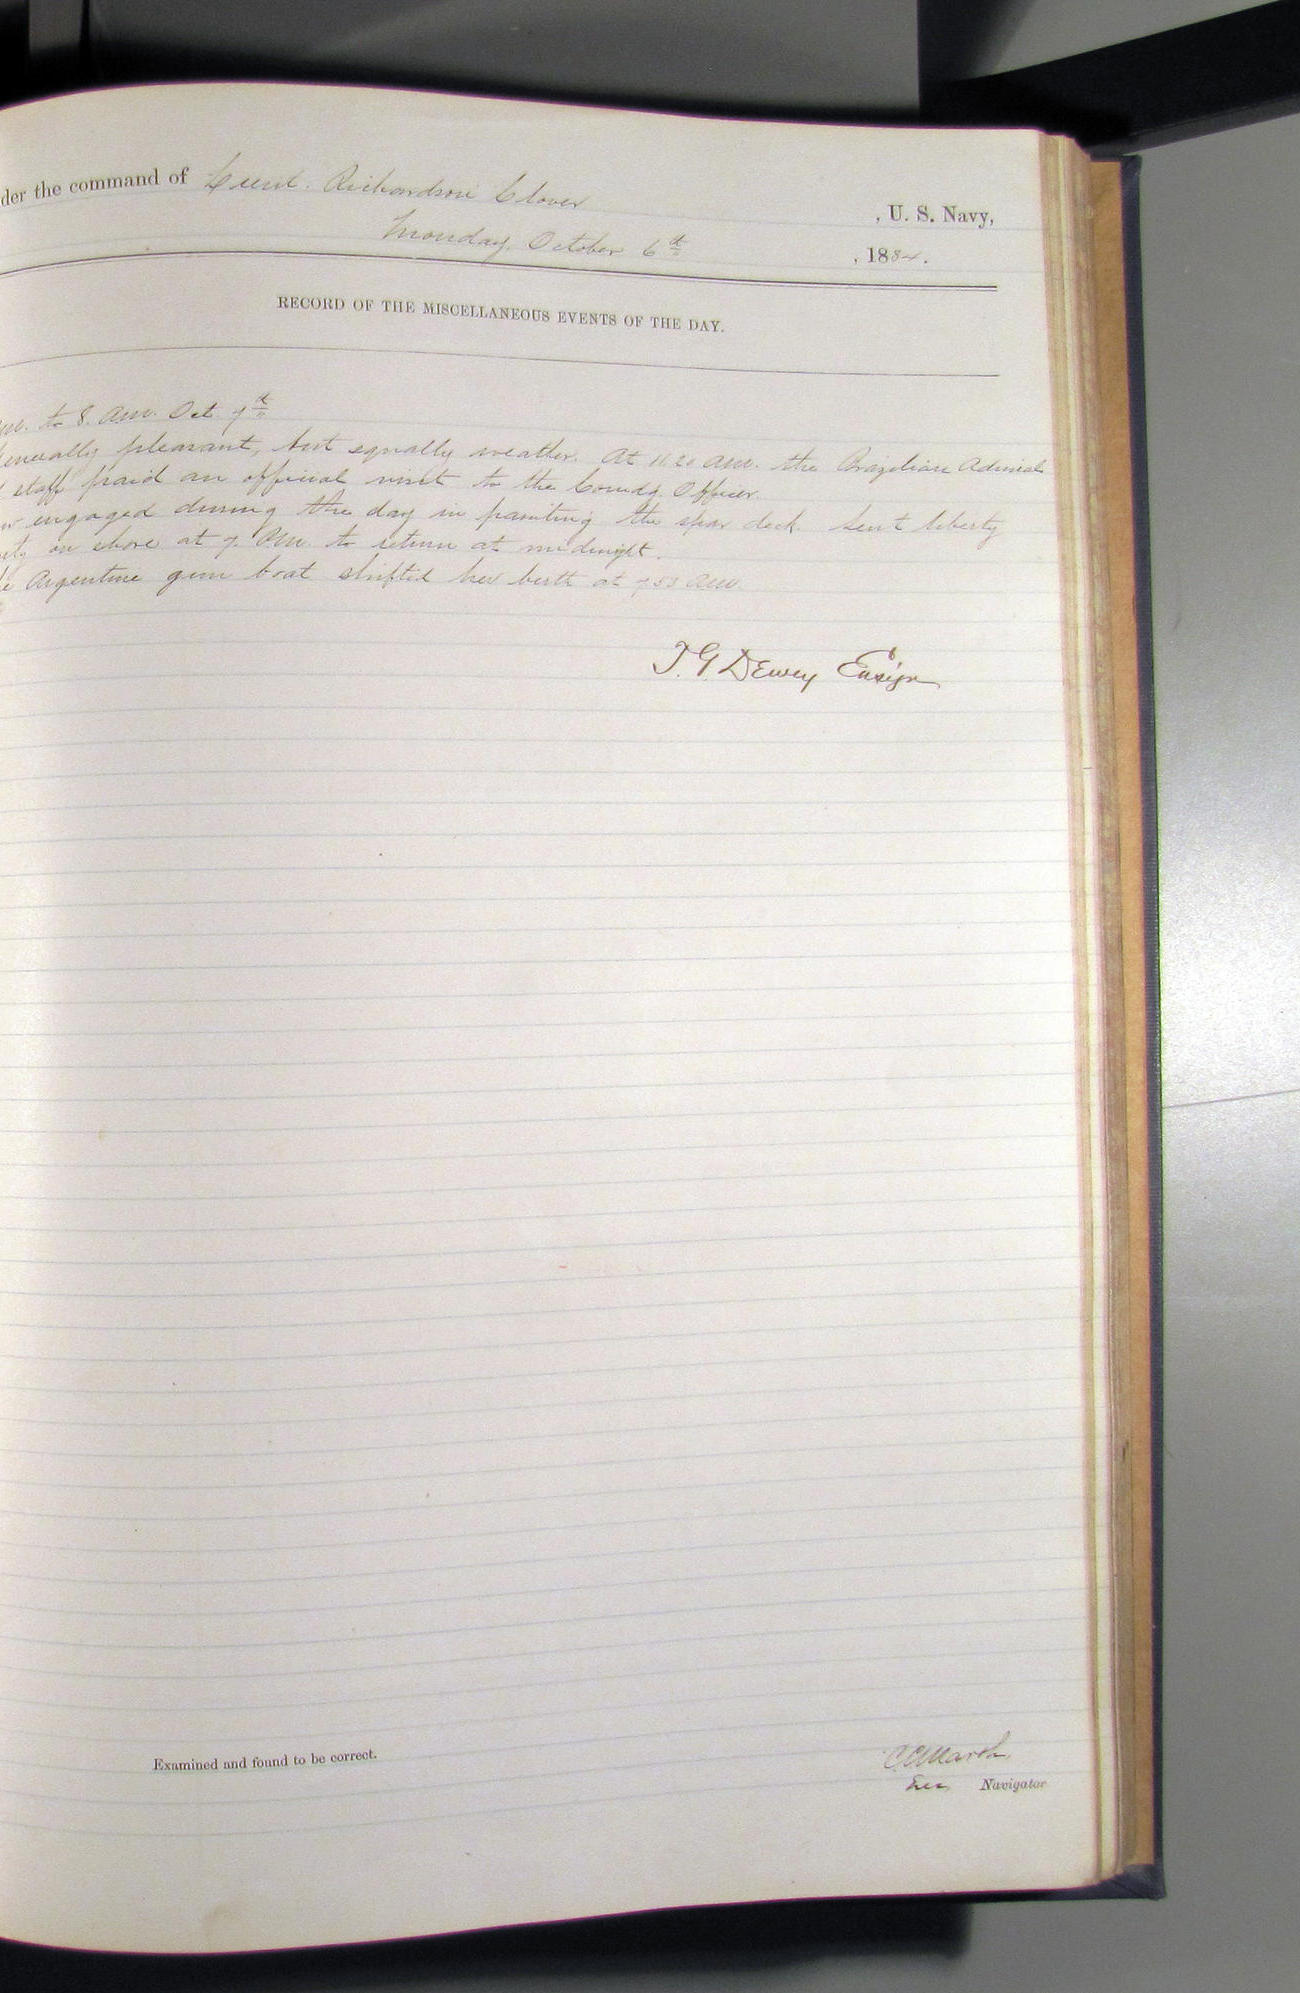 der the command of Lieut. Richardson Clover
, U. S. Navy,
Monday, October 6th
, 1884.
RECORD OF THE MISCELLANEOUS EVENTS OF THE DAY.
m. to 8. am. Oct 7th
enerally pleasant, but squally weather. At 11.20 am. the Brazilian Admiral
staff paid an official visit to the Comdg. Officer.
w engaged during the day in painting the spar deck. Sent liberty
rty on shore at 7. Pm. to return at midnight.
he Argentine gun boat shifted her berth at 7.53 am
T. G. Dewey Ensign
Examined and found to be correct.
C. C. Marsh
Navigator